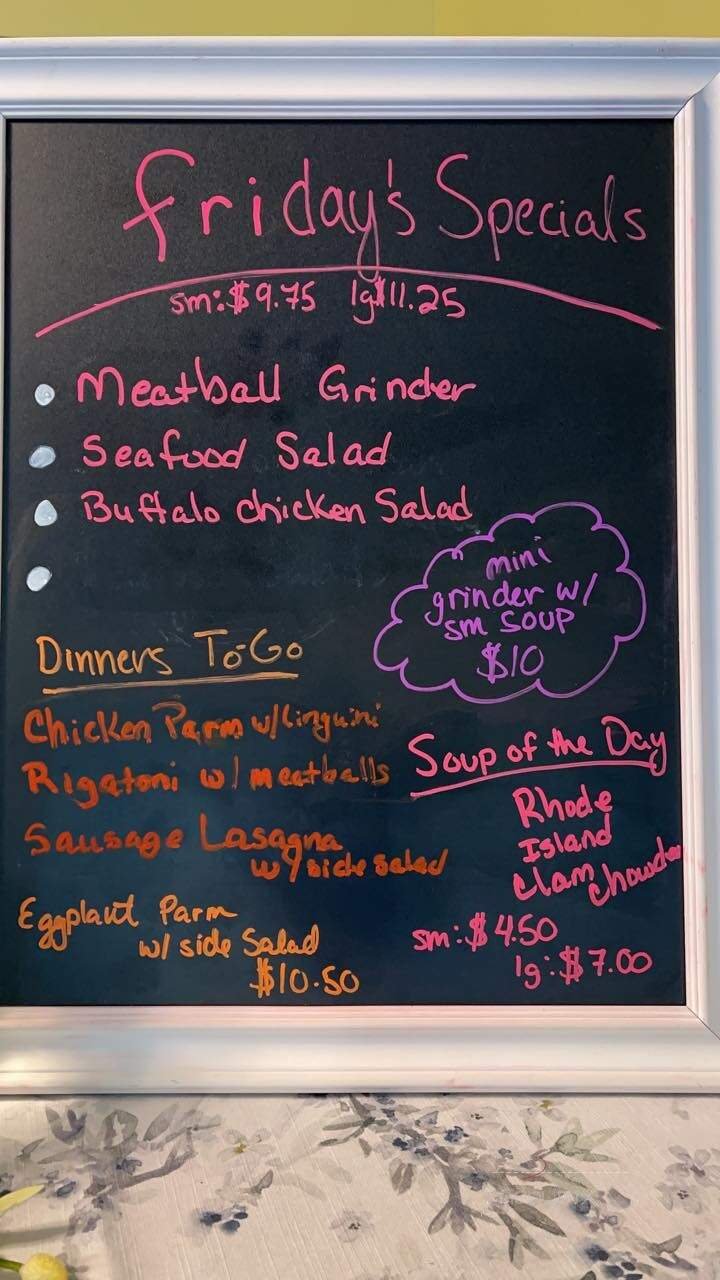 Friday's Specials
sm:$9.75 lg$11.25
Meatball Grinder
Seafood Salad
Buffalo chicken Salad
mini
grinder w/
sm soup
$10
Dinners To-Go
Chicken Parm w/linguini
Rigatoni w/ meatballs
Sausage Lasagna
w/side salad
Eggplant Parm
w/ side Salad
$10.50
Soup of the Day
Rhode
Island
Clam Chowder
sm:$4.50
lg:$7.00